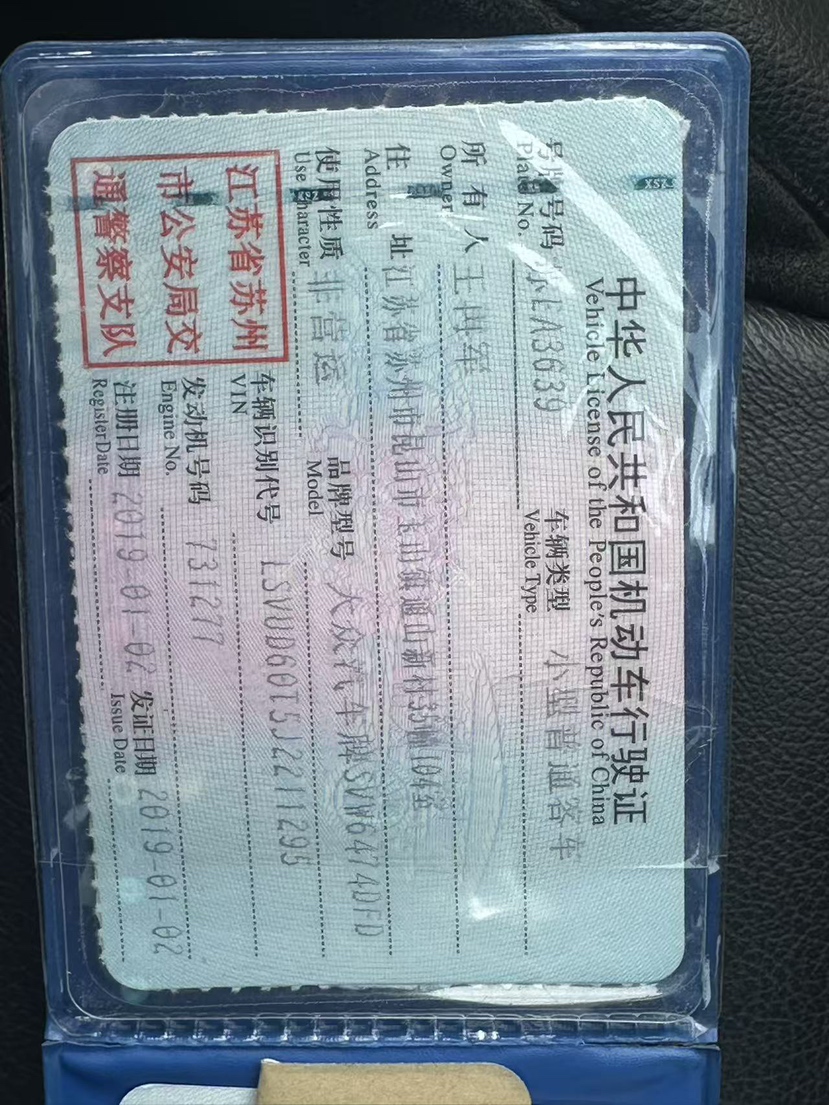 中华人民共和国机动车行驶证
Vehicle License of the People's Republic of China
号牌号码 A3639 车辆类型 小型普通客车
Plate No. Vehicle Type
所有人 王
Owner
住址 江苏省苏州市昆山市玉山镇 山新村35 104室
Address
使用性质 非营运 品牌型号 大众汽车牌SVW6474DFD
Use Character Model
江苏省苏州
市公安局交
通警察支队
车辆识别代号 LSVUD60T5J2211295
VIN
发动机号码 731277
Engine No.
注册日期 2019-01-02 发证日期 2019-01-02
Register Date Issue Date